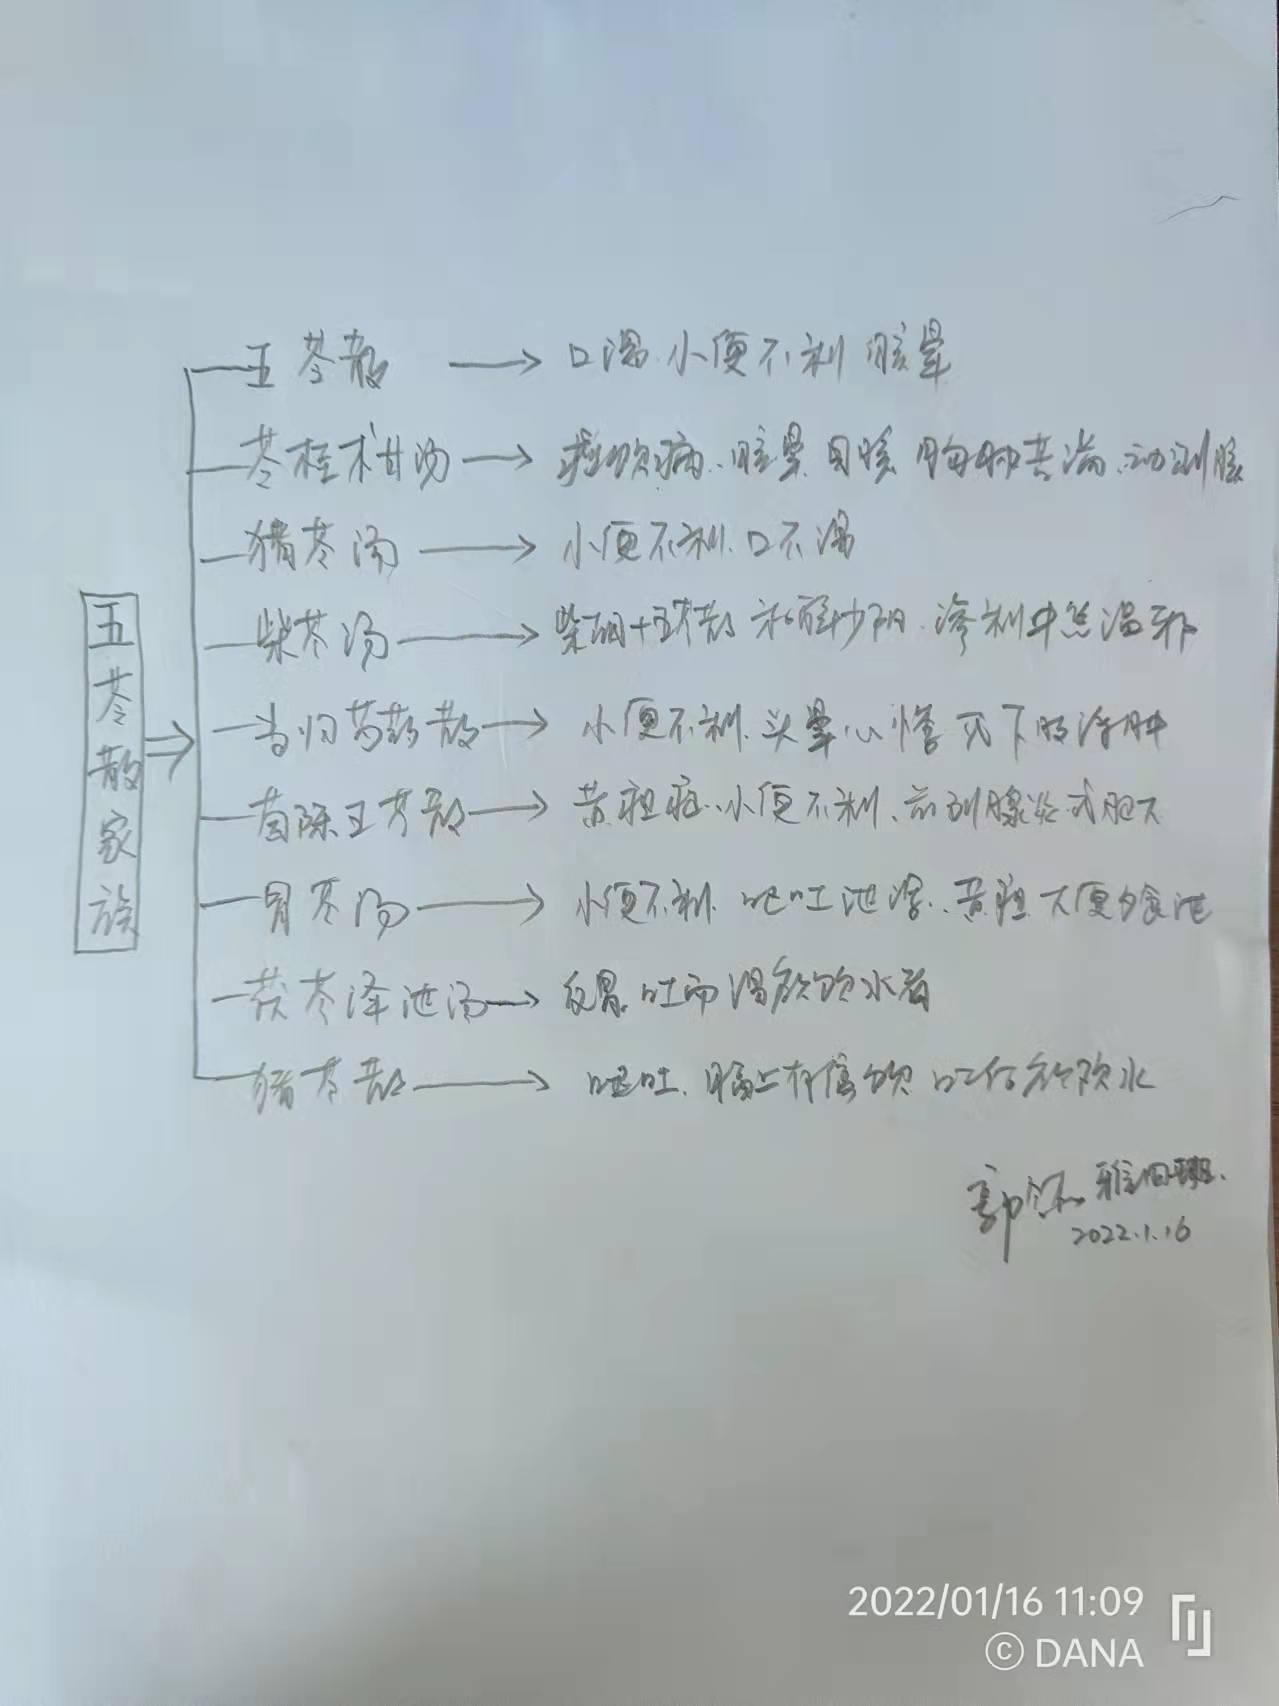 五苓散家族
五苓散 → 口渴.小便不利 眩晕
苓桂术甘汤 → 痰饮病、眩晕 目眩 胸胁苦满、动则眩
猪苓汤 → 小便不利.口不渴
柴苓汤 → 柴胡+五苓散 和解少阳.渗利中焦湿邪
当归芍药散 → 小便不利.头晕心悸 下肢浮肿
茵陈五苓散 → 黄疸症、小便不利、前列腺炎或胆
胃苓汤 → 小便不利. 呕吐泄泻、黄疸 大便
茯苓泽泄汤 → 反胃.吐而渴欲饮水者
猪苓散 → 呕吐. 膈上有停饮 欲饮水
郭 班.
2022.1.16
2022/01/16 11:09
© DANA